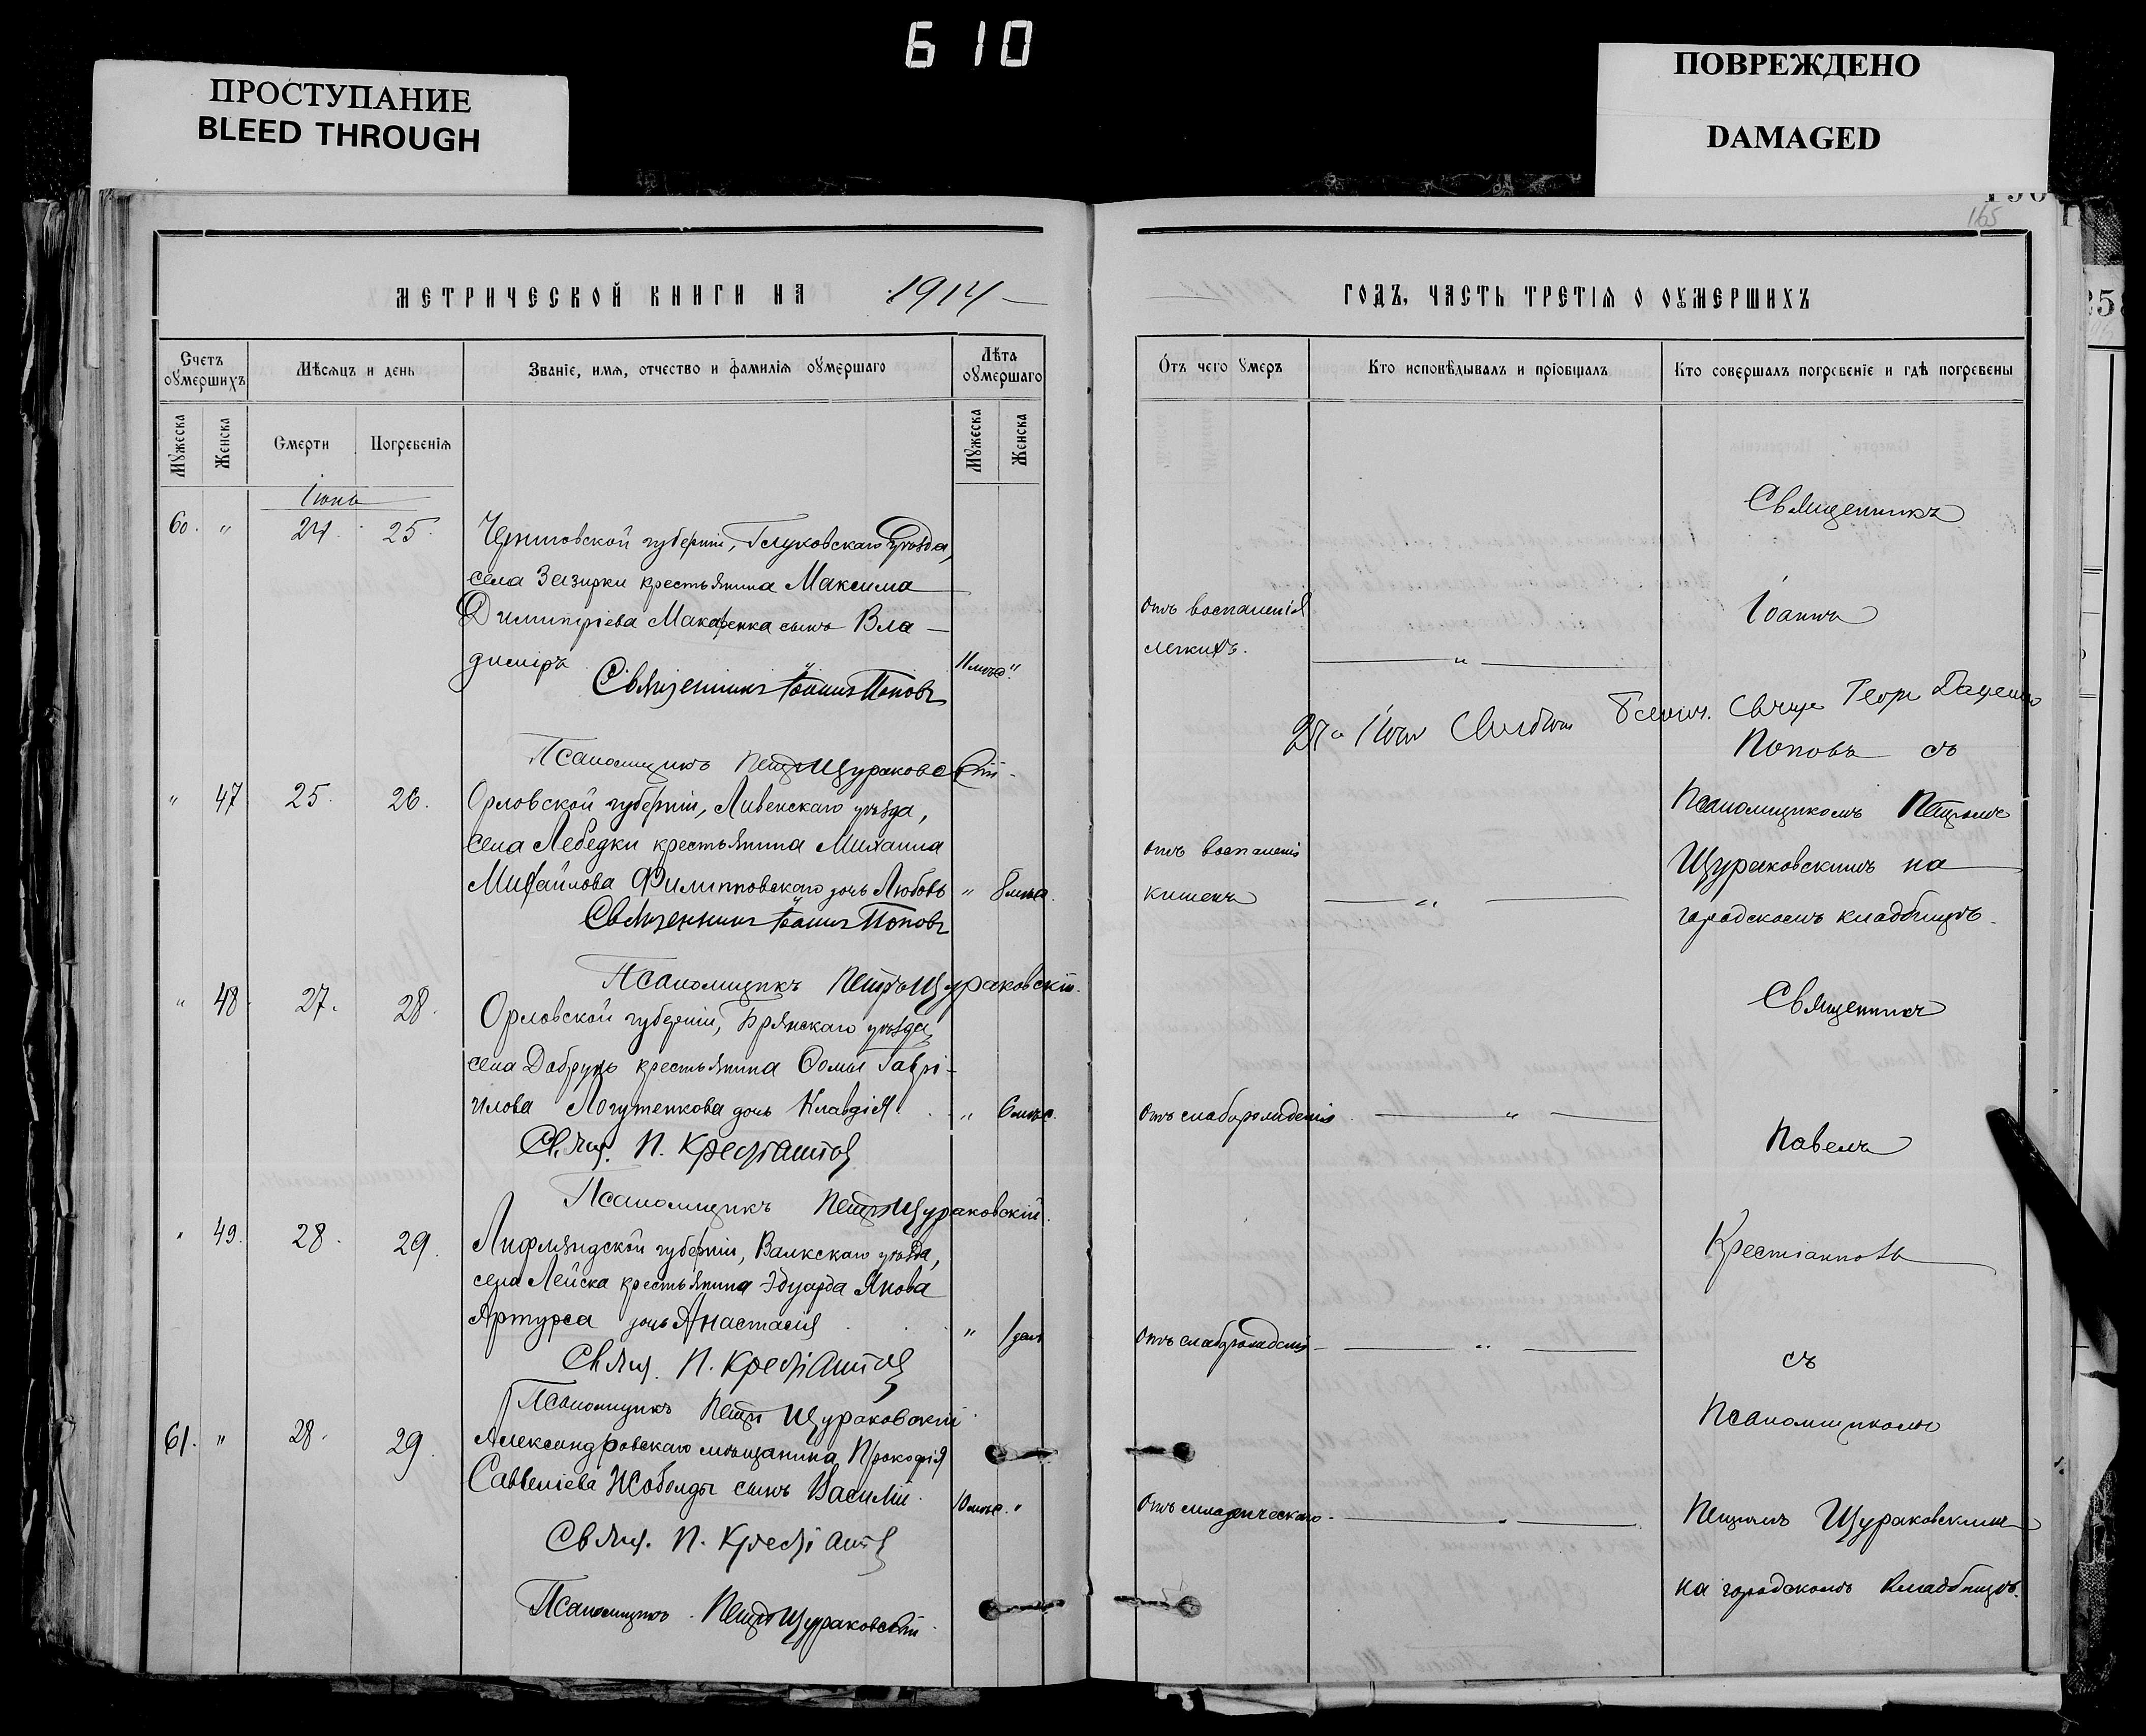 610
ПРОСТУПАНИЕ
BLEED THROUGH
ПОВРЕЖДЕНО
DAMAGED
165
МЕТРИЧЕСКОЙ КНИГИ НА 1914
Счетъ оумершихъ
Мѣсяцъ и день
Званіе, имя, отчество и фамилія оумершаго
Лѣта оумершаго
Мужеска
Женска
Смерти
Погребенія
Мужеска
Женска
Іюнь
60. " 24. 25. Черниговской губерніи, Глуховскаго уѣзда,
села Зазирки крестьянина Максима
Димитріева Макаренка сынъ Вла-
диміръ 11 мѣся. "
Священникъ Іоаннъ Поповъ
Псаломщикъ Петръ Щураковскій
" 47 25. 26. Орловской губерніи, Ливенскаго уѣзда,
села Лебедки крестьянина Михаила
Михайлова Филипповскаго дочь Любовь " 8 мѣся.
Священникъ Іоаннъ Поповъ
Псаломщикъ Петръ Щураковскій.
" 48 27. 28. Орловской губерніи, Брянскаго уѣзда,
села Добрунь крестьянина Ѳомы Гаврі-
илова Логутенкова дочь Клавдія " 6 мѣся.
Свящ. П. Крестіанпов
Псаломщикъ Петръ Щураковскій.
" 49. 28. 29. Лифляндской губерніи, Валкскаго уѣзда,
села Лейска крестьянина Эдуарда Янова
Артурса дочь Анастасія " 1 день
Свящ. П. Крестіанпов
Псаломщикъ Петръ Щураковскій
61. " 28. 29. Александровскаго мѣщанина Прокофія
Савеліева Жоболды сынъ Василій 10 мѣся. "
Свящ. П. Крестіанпов
Псаломщикъ Петръ Щураковскій
ГОДЪ, ЧАСТЬ ТРЕТІЯ О ОУМЕРШИХЪ
Отъ чего умеръ
Кто исповѣдывалъ и пріобщалъ
Кто совершалъ погребеніе и гдѣ погребены
Священникъ
отъ воспаленія
легкихъ. "
Іоаннъ
Поповъ съ
Псаломщикомъ Петромъ
отъ воспаленія
кишекъ "
Щураковскимъ на
городскомъ кладбищѣ.
Священникъ
Отъ слаборожденія "
Павелъ
Крестіанповъ
Отъ слаборожденія "
съ
Псаломщикомъ
Отъ младенческаго "
Петромъ Щураковскимъ
на городскомъ кладбищѣ.